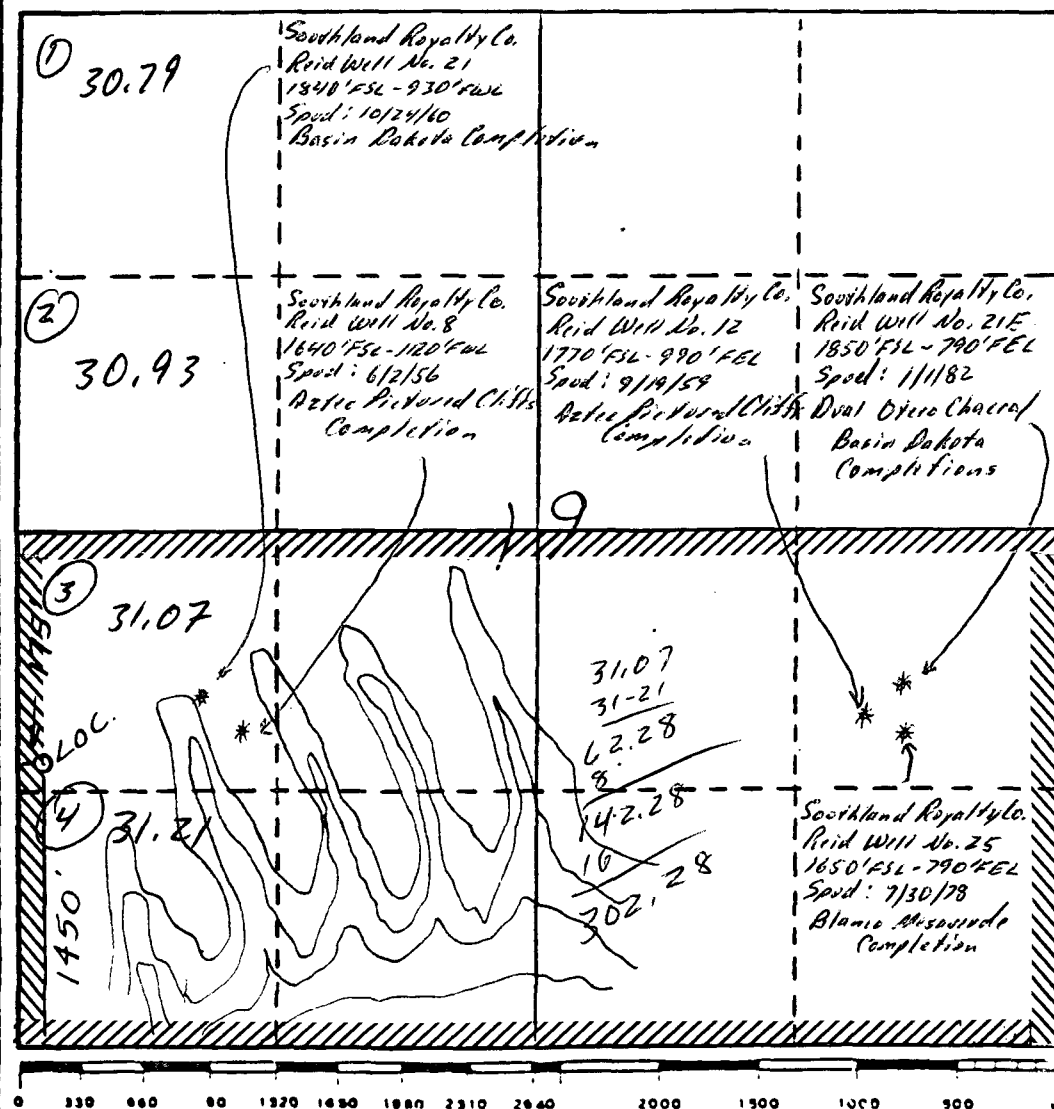 1
30.79
Southland Royalty Co.
Reid Well No. 21
1840' FSL - 930' FWL
Spud: 10/24/60
Basin Dakota Completion
2
30.93
Southland Royalty Co.
Reid Well No. 8
1640' FSL - 1120' FWL
Spud: 6/2/56
Aztec Pictured Cliffs
Completion
Southland Royalty Co.
Reid Well No. 12
1770' FSL - 990' FEL
Spud: 9/19/59
Aztec Pictured Cliffs
Completion
Southland Royalty Co.
Reid Well No. 21E
1850' FSL - 790' FEL
Spud: 1/1/82
Dual Otero Chacral
Basin Dakota
Completions
19
3
31.07
LOC.
31.07
31-21
62.28
8
142.28
16
302.28
4
31.21
1450'
Southland Royalty Co.
Reid Well No. 25
1650' FSL - 790' FEL
Spud: 7/30/78
Blanco Mesaverde
Completion
0 330 660 90 1320 1650 1980 2310 2640 2000 1500 1000 500